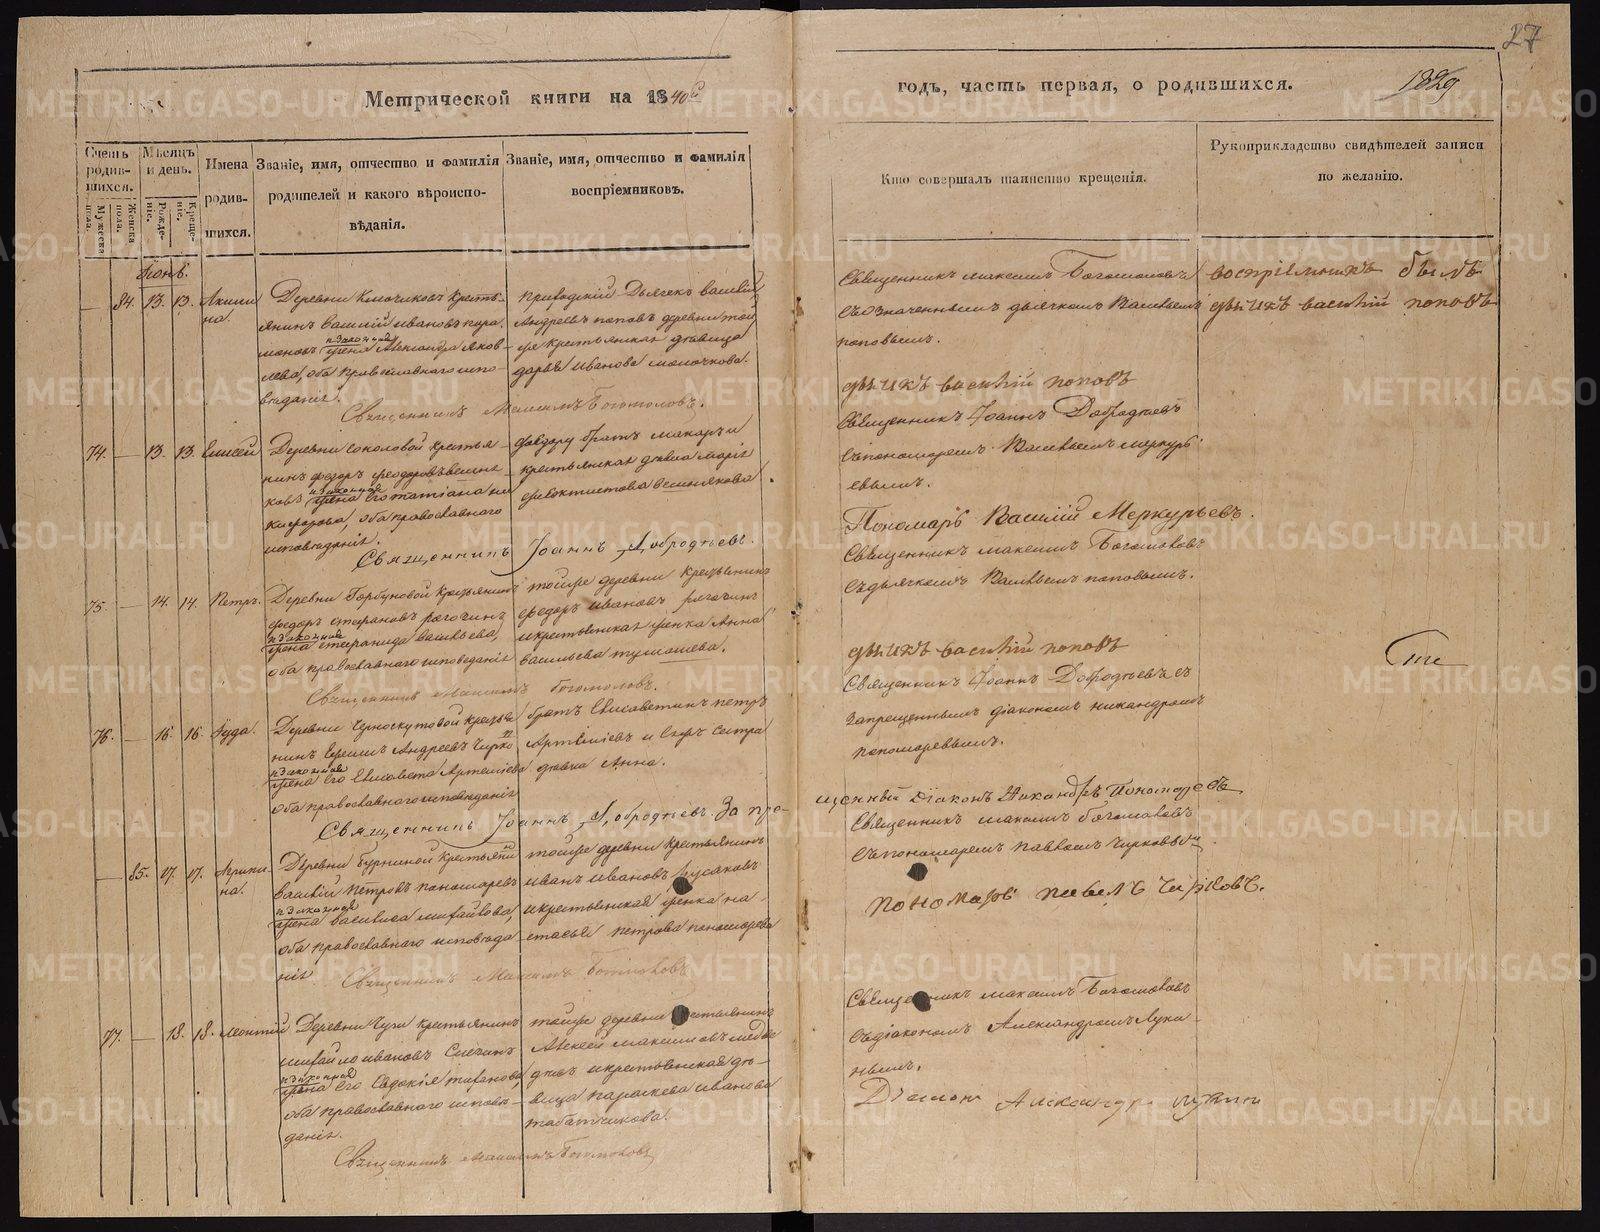 27
Метрической книги на 1840й
годъ, часть первая, о родившихся.
1829
Счетъ родив-шихся.
Мужеска пола.
Женска пола.
Мѣсяцъ и день.
Рожде-ніе.
Креще-ніе.
Имена
родив-
шихся.
Званіе, имя, отчество и фамилія
родителей и какого вѣроиспо-
вѣданія.
Званіе, имя, отчество и фамилія
воспріемниковъ.
Кто совершалъ таинство крещенія.
Рукоприкладство свидѣтелей записи
по желанію.
84. 13. 13.
Деревни
янинъ Василій Ивановъ
жена Александра Яков-
лева, оба православнаго испо-
веданія.
Священникъ Максимъ Богомоловъ.
Дьячекъ Василій
Андреевъ Поповъ деревни той
же крестьянская девица
Дарья Иванова
Священникъ Максимъ Богомоловъ
съ означеннымъ дьячкомъ Васильемъ
Поповымъ.
воспріемникъ былъ
василій поповъ
василій поповъ
74. 13. 13. Елисей
Деревни Соколовой крестья-
нинъ Федоръ Феодоровъ
законная
жена его Татіана Ни-
кифорова, оба православнаго
исповеданія.
Священникъ Іоаннъ Добродѣевъ.
Федору братъ Макаръ и
крестьянская девка Марія
Феоктистова
Священникъ Іоаннъ Добродѣевъ
съ пономаремъ Васильемъ Меркурь-
евымъ.
Пономарь Василій Меркурьевъ.
75. 14. 14. Петръ.
Деревни Горбуновой крестьянинъ
Федоръ Стефановъ Рогочинъ
законная
жена Степанида Васильева,
оба православнаго исповеданія
Священникъ Максимъ Богомоловъ.
тойже деревни крестьянинъ
Федоръ Ивановъ Рогочинъ
и крестьянская женка Анна
Васильева
Священникъ Максимъ Богомоловъ
съ дьячкомъ Васильемъ Поповымъ.
василій поповъ
76. 16. 16. Іуда.
Деревни Черноскутовой кресть-
янинъ Ефимъ Андреевъ Чирко
законная
жена его Елисавета Артеміева
оба православнаго исповеданія
Священникъ Іоаннъ Добродѣевъ. Запре-
братъ Елисаветинъ Петръ
Артеміевъ и Егоръ сестра
девка Анна.
Священникъ Іоаннъ Добродѣевъ съ
запрещеннымъ діакономъ Никандромъ
Пономаревымъ.
щенный Діаконъ Никандръ Пономаревъ
85. 17. 17. Агрипи-
на.
Деревни Бурниной крестьянинъ
Василій Петровъ Пономаревъ
законная
жена Василиса Михайлова,
оба православнаго исповеда-
нія.
Священникъ Максимъ Богомоловъ
тойже деревни крестьянинъ
Иванъ Ивановъ Русаковъ
и крестьянская женка На-
стасья Петрова Пономарева
Священникъ Максимъ Богомоловъ
съ пономаремъ Павломъ Чирковымъ
пономарь павелъ Чирковъ.
77. 18. 18. Леонтій
Деревни крестьянинъ
Михайло Ивановъ
законная
жена его Евдокія
оба православнаго испове-
данія.
Священникъ Максимъ Богомоловъ
тойже деревни крестьянинъ
Алексей Максимовъ Медве-
девъ и крестьянская де-
вица Параскева Иванова
Табатчикова.
Священникъ Максимъ Богомоловъ
съ діакономъ Александромъ Луки-
нымъ.
Діаконъ Александръ Лукинъ
METRIKI.GASO-URAL.RU